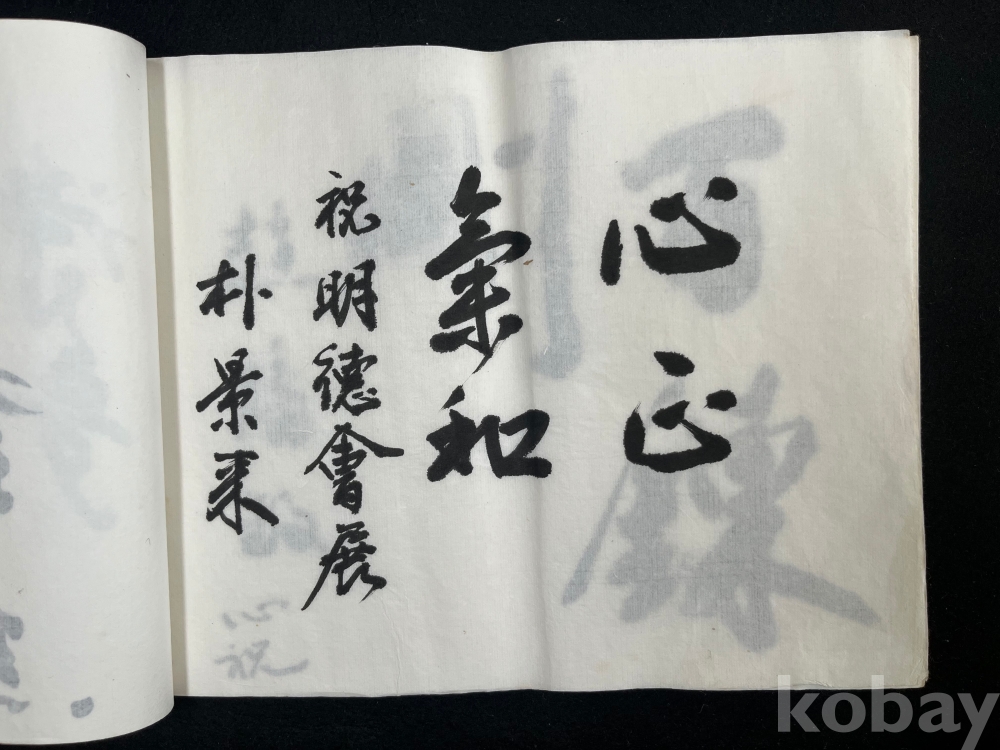 心正
氣和
祝明德會展
朴景来
心祝
kobay